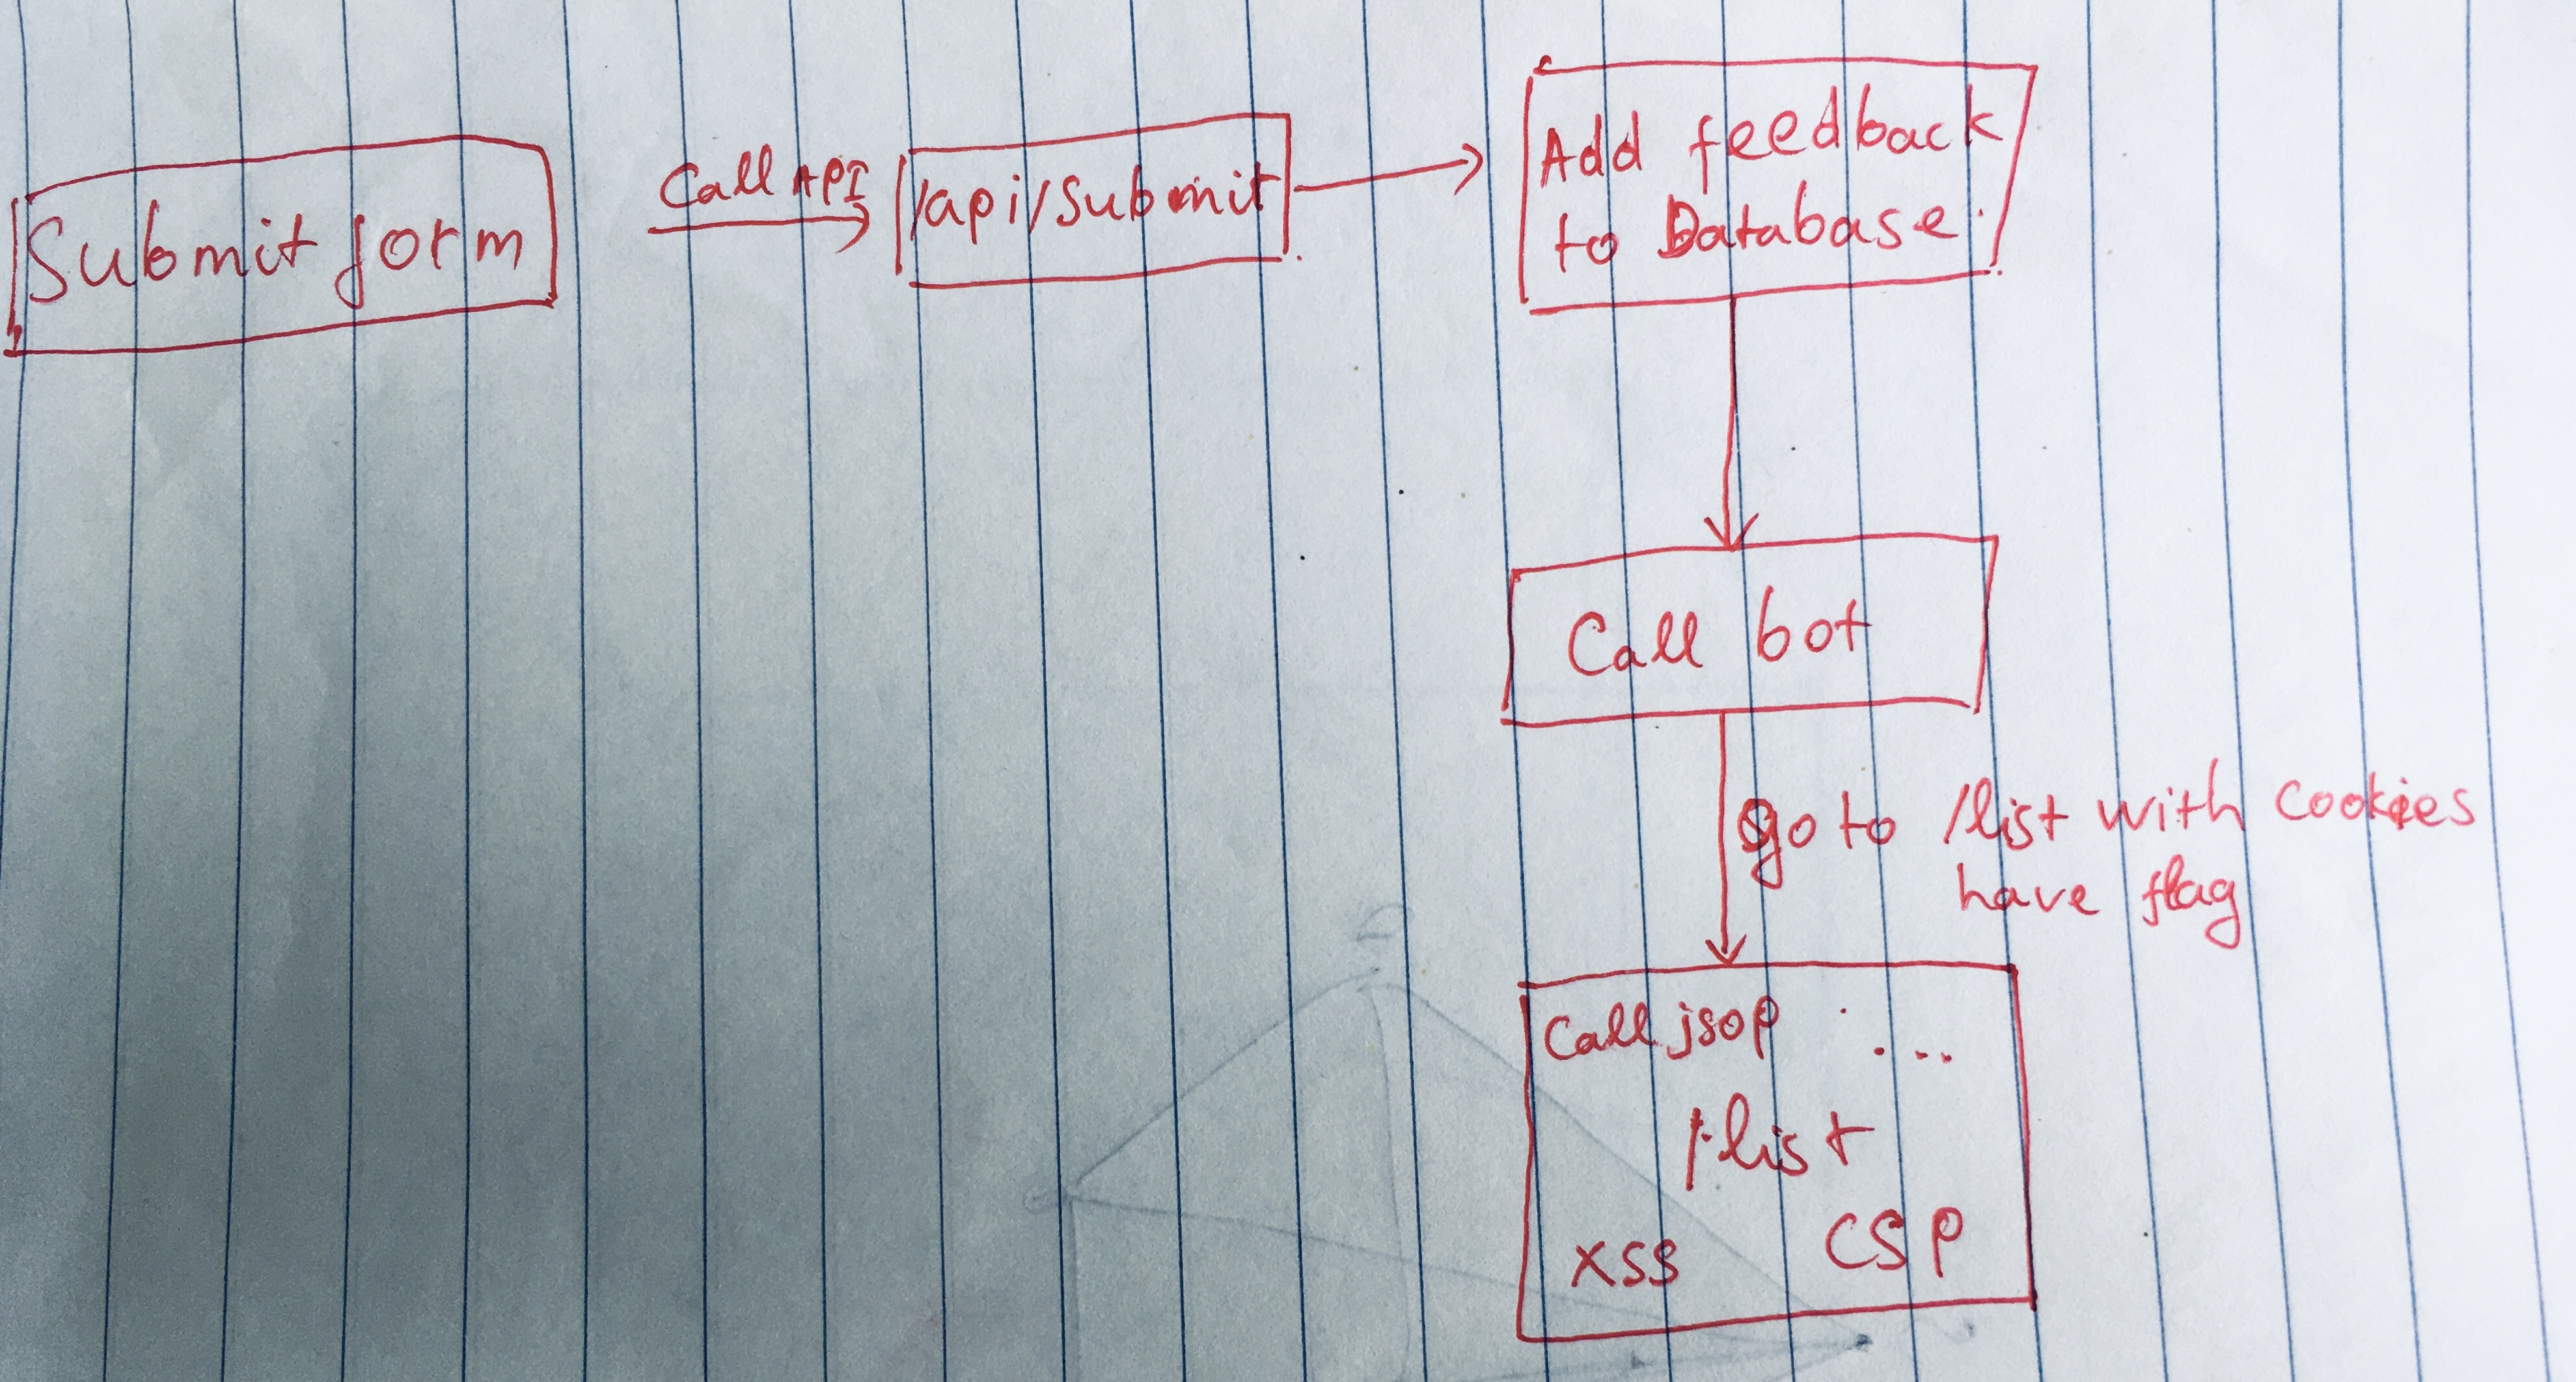 Submit form
Call API
/api/submit
Add feedback
to Database.
Call bot
go to /list with cookies
have flag
Call jsop ...
/list
XSS CSP